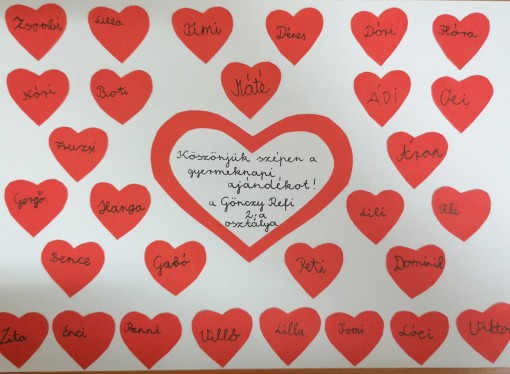 Zsombi Lilla Timi Dénes Dóri Flóra
Nóri Boti Máté Ádi
Fruzsi Áron
Köszönjük szépen a
gyermeknapi
ajándékot!
a Gönczy Refi
2. a
osztálya
Gergő Hanga Lili
Bence Gabó Peti Dominik
Zita Enci Panni Villő Lilla Tomi Lóci Viktor